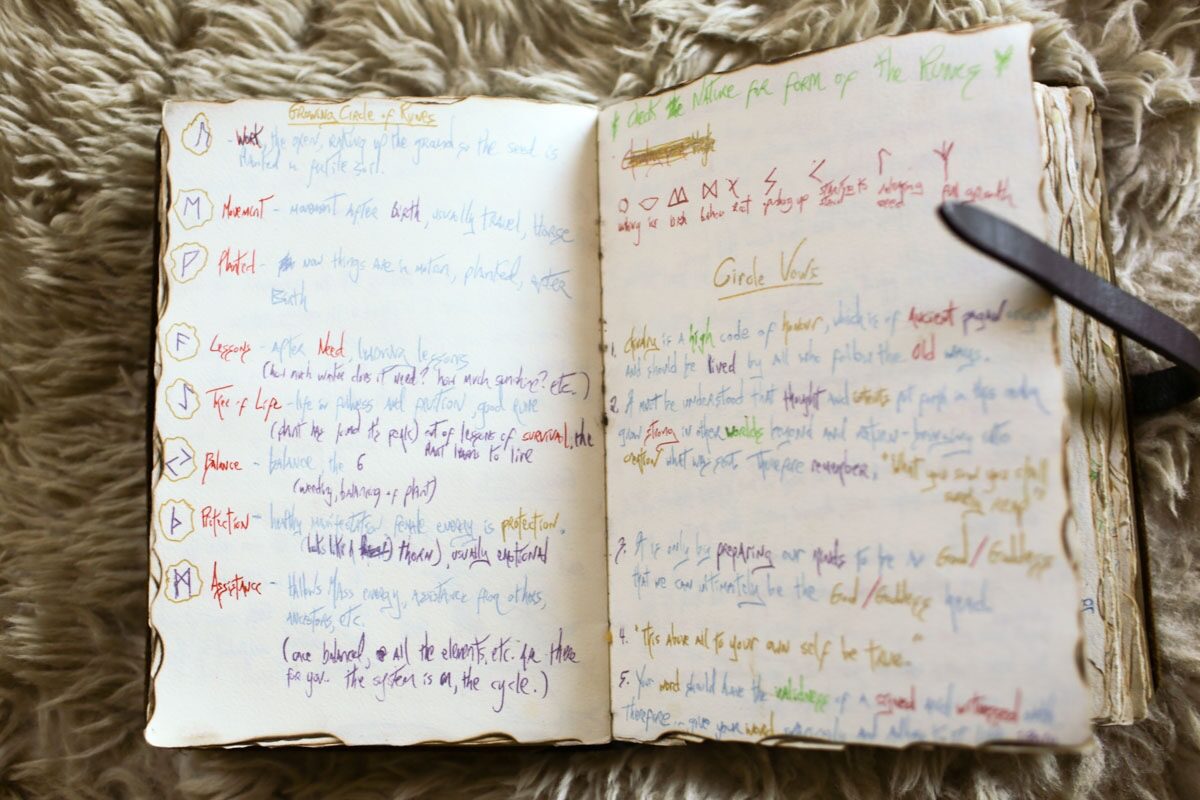 Growing Circle of Runes
ᚢ - Work, the oxen, raking up the ground so the seed is
planted in fertile soil.
ᛖ Movement - movement after Birth, usually travel, Horse
ᚹ Planted - now things are in motion, planted, after
Birth
ᚨ Lessons - after Need, learning lessons
(how much water does it need? how much sunshine? etc.)
Tree of Life - life in fullness and fruition, good rune
(plant has found its peak) out of lessons of survival, the
plant learns to live
Balance - balance, the 6
(weather, balancing of plant)
ᚦ Protection - healthy manifestation female energy is protection,
(looks like a thorn), usually emotional
ᛗ Assistance - Mass energy, assistance from others,
ancestors, etc.
(once balanced, all the elements, etc. are there
for you.. The system is on, the cycle.)
* Check the Nature for form of the Runes *
birth rest pushing up full growth
need
Circle Vows
1. is a high code of honour, which is of Ancient pagan
and should be lived by all who follow the old ways.
2. It must be understood that thought and put forth in this
grow strong in other worlds beyond and return bringing into
creation what was sent. Therefore remember, "What you sow you shall
surely reap"
3. It is only by preparing our minds to be as God/Goddess
that we can ultimately be the God/Goddess head.
4. "This above all to your own self be true."
5. Your word should have the of a signed and witnessed
Therefore... give your word